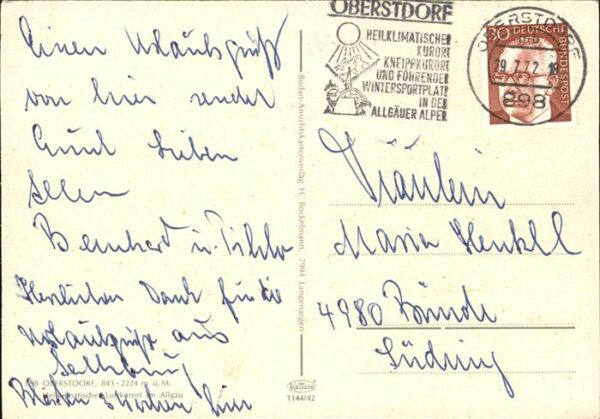 Einen Urlaubsgruß
von hier sendet
Euch lieben
Bernhard u.
Herzlichen Dank für die
Urlaubsgrüße aus
hier
898 OBERSTDORF, 843 - 2224 m ü. M.
Heilklimatischer Luftkurort im Allgäu
Bodan-Ansichtskartenverlag H. Bockelmann, 7994 Langenargen
KRÜGER
1144/42
OBERSTDORF
HEILKLIMATISCHER
KURORT
KNEIPPKURORT
UND FÜHRENDER
WINTERSPORTPLATZ
IN DEN
ALLGÄUER ALPEN
OBERSTDORF
29.7.72
898
30
DEUTSCHE
BUNDESPOST
Fräulein
Maria Henkel
4980 Bünde
Südring